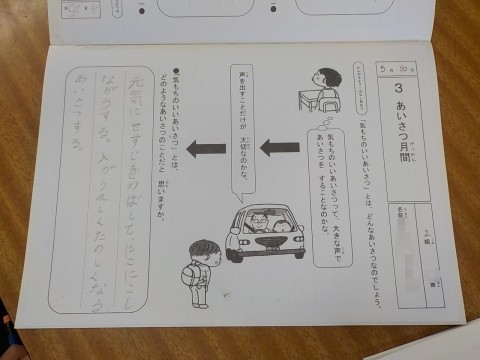 5月16日
3 あいさつ月間
げっかん
2組
名前
「気もちのいいあいさつ」とは、どんなあいさつなのでしょう。
気もちのいいあいさつって、大きな声で
あいさつを することなのかな。
声を出すことだけが 大切なのかな。
●「気もちのいいあいさつ」とは、
どのようなあいさつのことだと 思いますか。
元気にせすじをのばして、にこにこし
ながらする。人がうれしくたのしくなる
あいさつする。